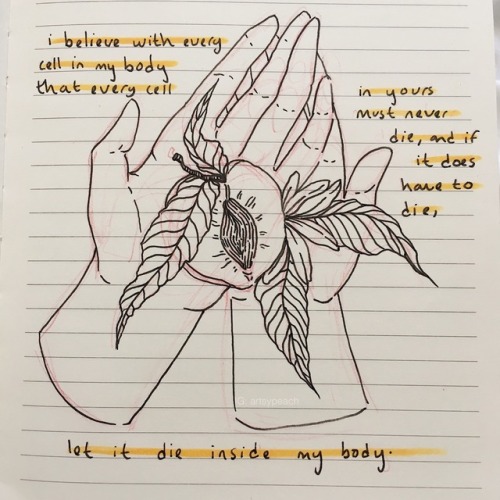 i believe with every
cell in my body
that every cell
in yours
must never
die, and if
it does
have to
die,
G: artsypeach
let it die inside my body.